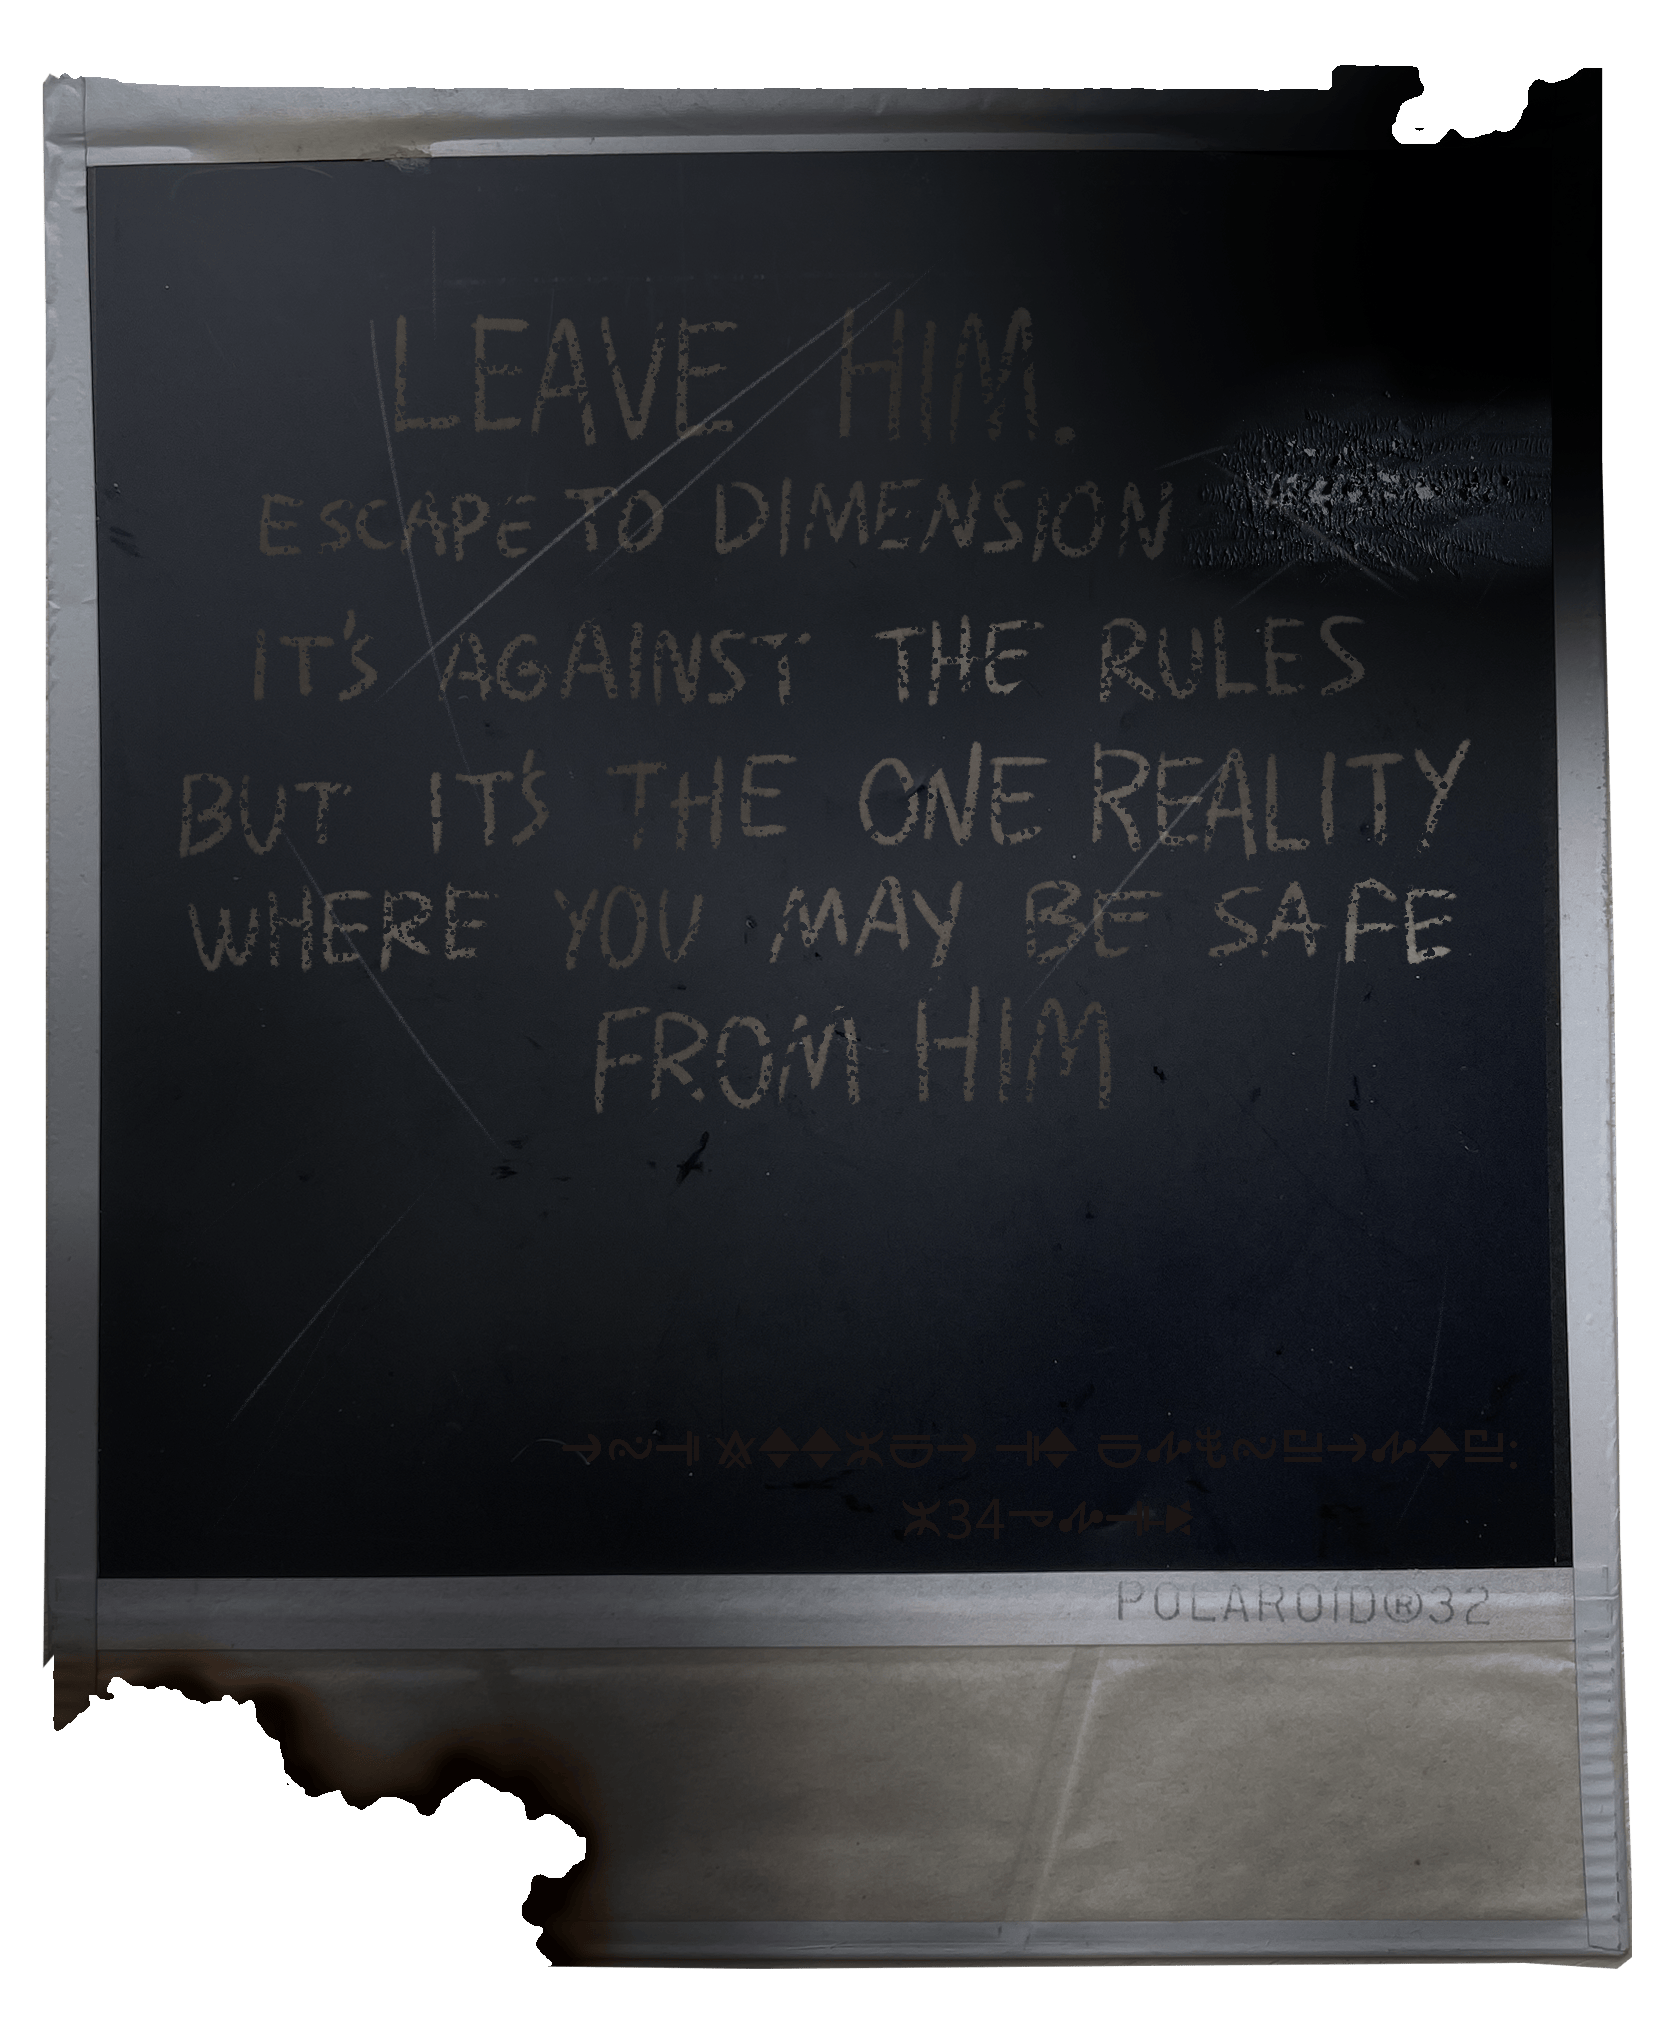 LEAVE HIM.
ESCAPE TO DIMENSION
IT'S AGAINST THE RULES
BUT IT'S THE ONE REALITY
WHERE YOU MAY BE SAFE
FROM HIM
34
POLAROID®32